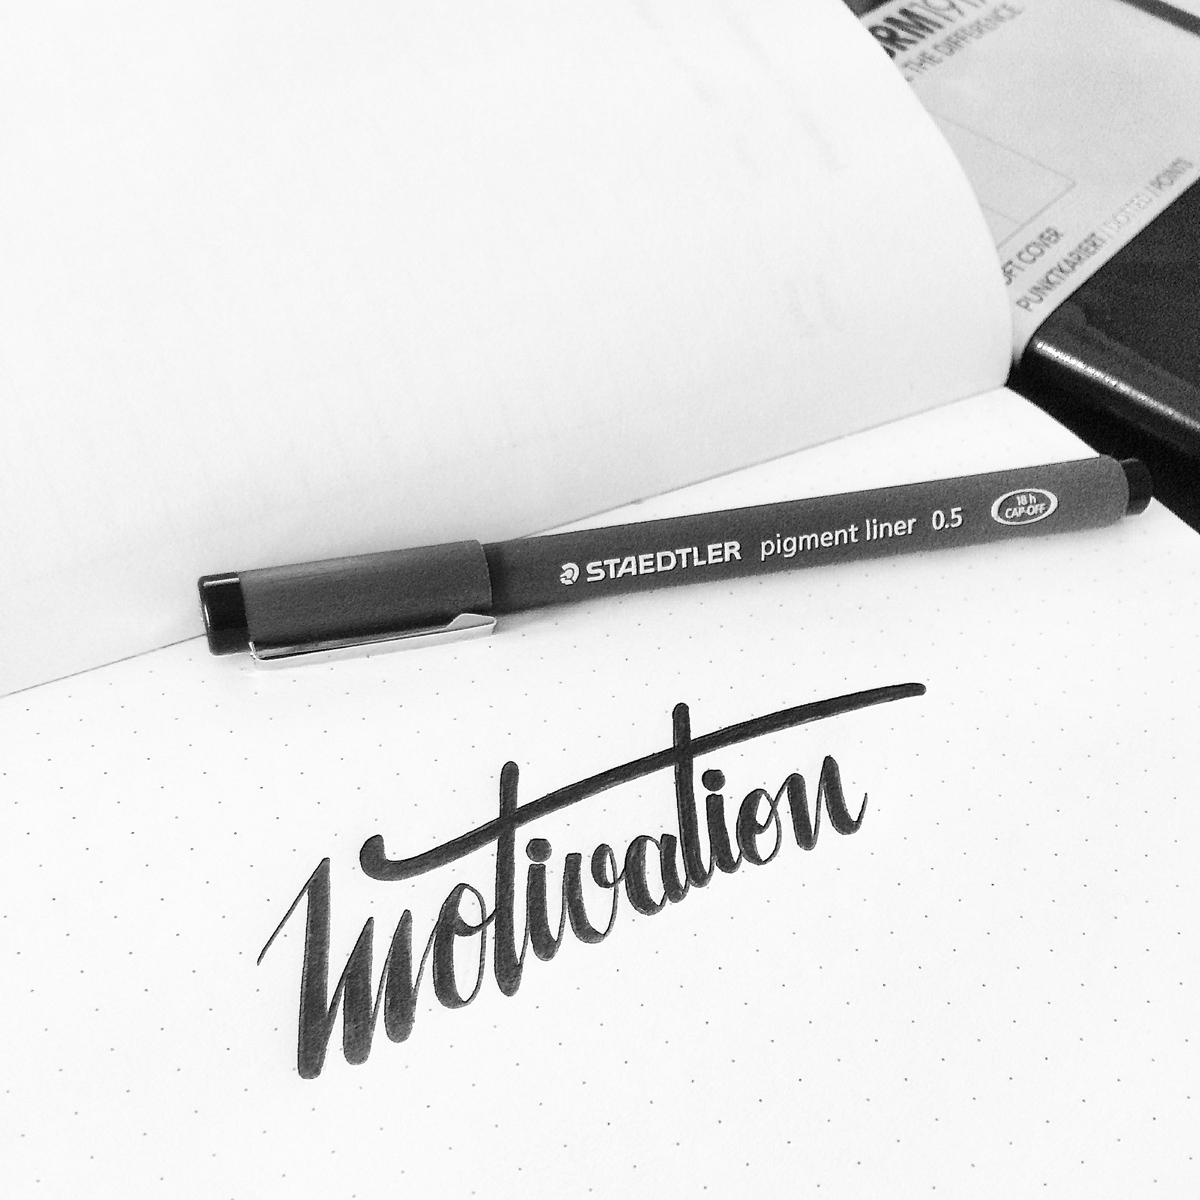 THE DIFFERENCE
COVER
PUNKTKARIERT / DOTTED / POINTS
STAEDTLER pigment liner 0.5
18 h
CAP-OFF
motivation